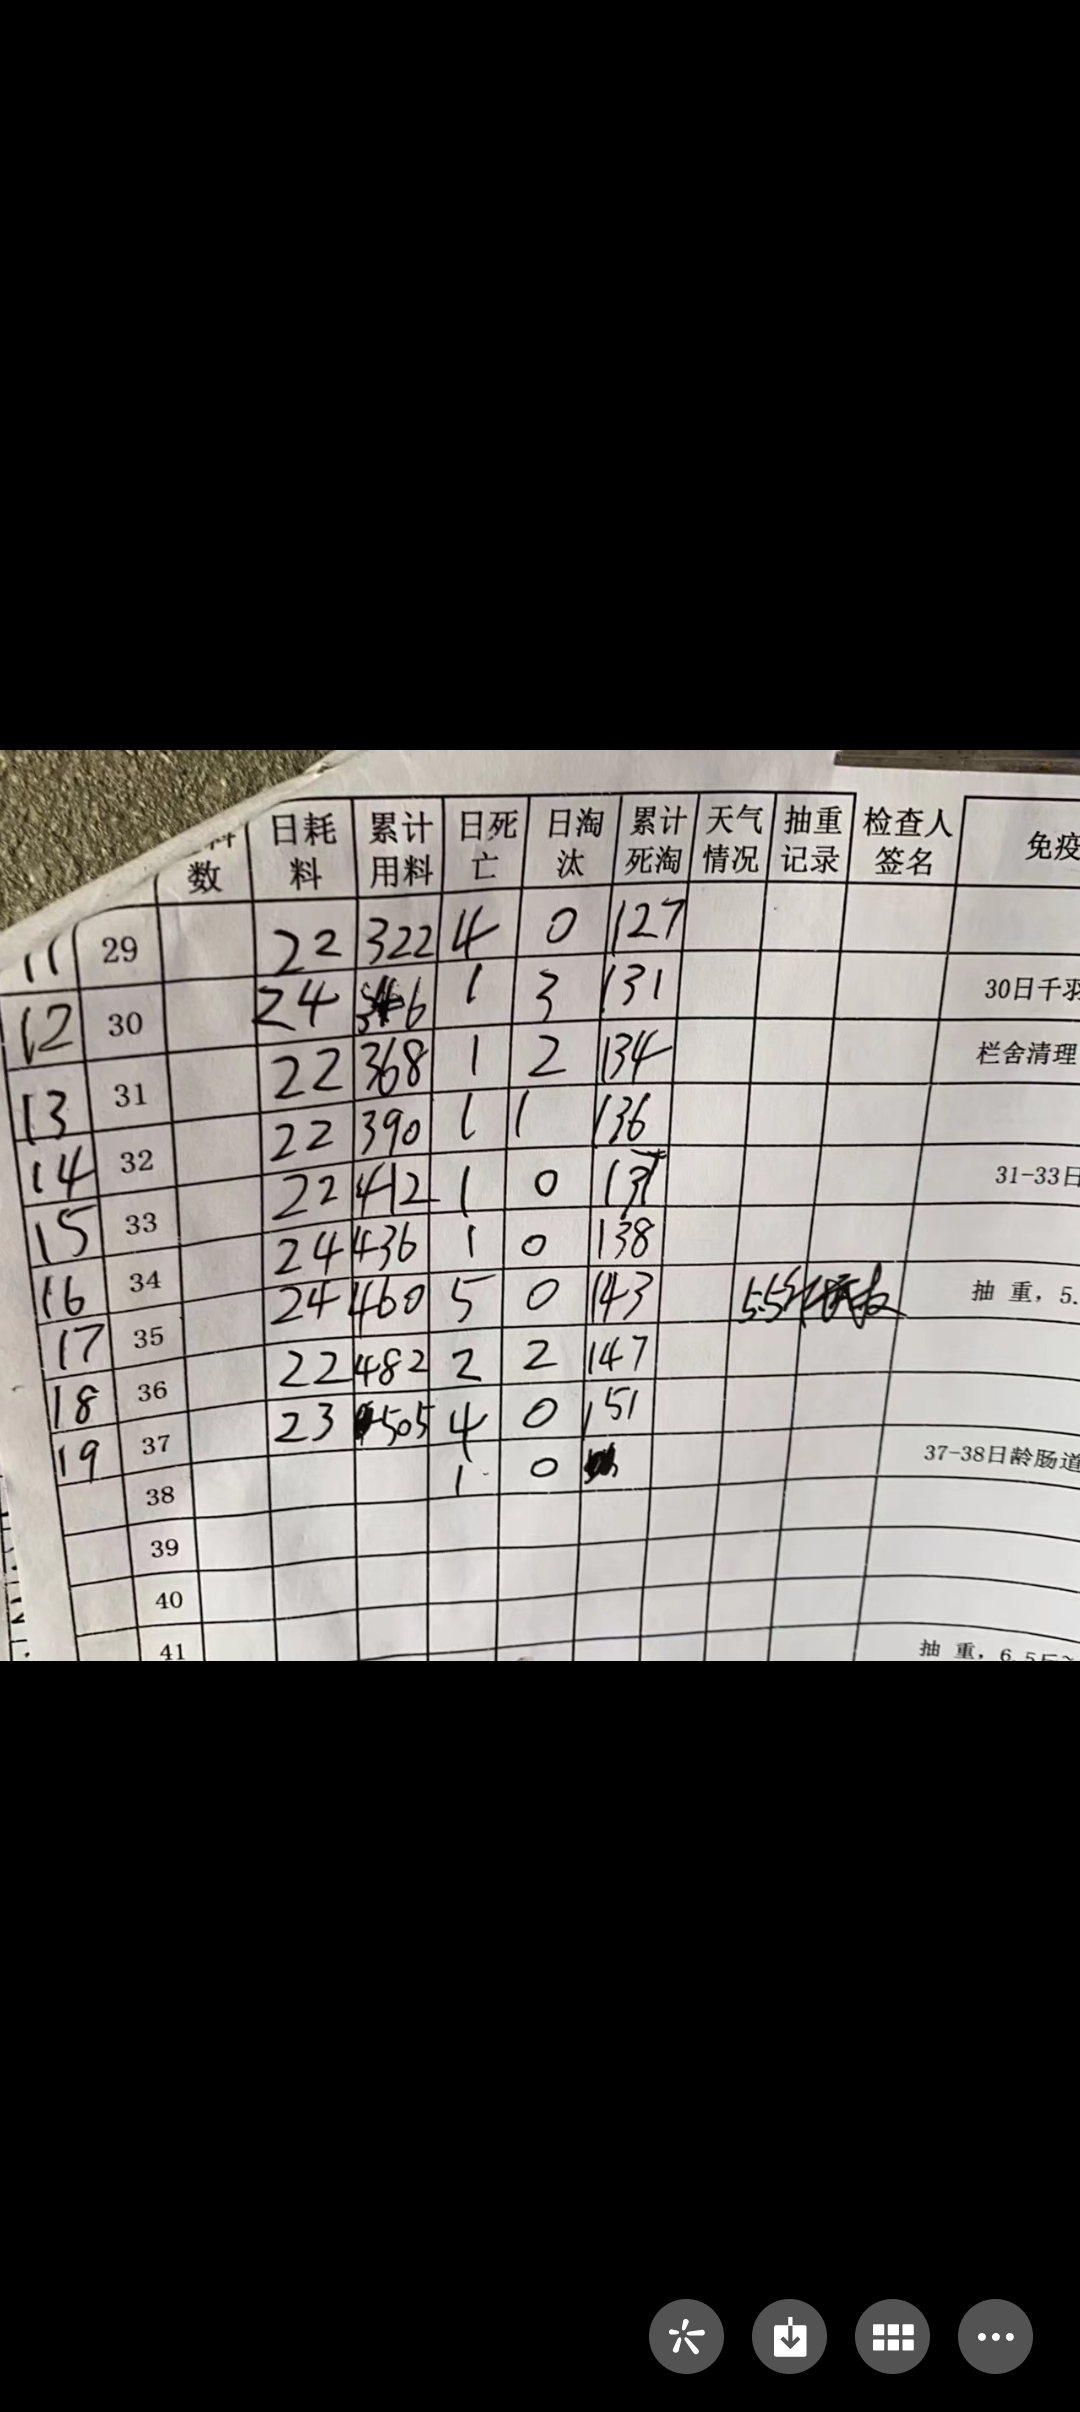 数 日耗料 累计用料 日死亡 日淘汰 累计死淘 天气情况 抽重记录 检查人签名 免疫
11 29 22 322 4 0 127
12 30 24 346 1 3 131 30日千羽
13 31 22 368 1 2 134 栏舍清理
14 32 22 390 1 1 136
15 33 22 412 1 0 137 31-33日
16 34 24 436 1 0 138
17 35 24 460 5 0 143 5.5斤 抽 重，5.
18 36 22 482 2 2 147
19 37 23 505 4 0 151
38 1 0 37-38日龄肠道
39
40
41 抽 重，6.5斤~